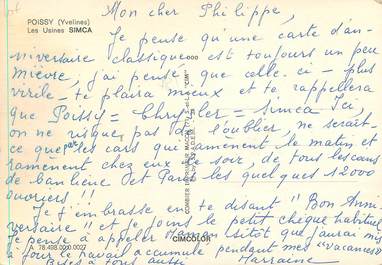 POISSY (Yvelines)
Les Usines SIMCA
Mon cher Philippe,
Je pense qu'une carte d'an-
niversaire classique est toujours un peu
mièvre, j'ai pensé que celle-ci - plus
virile - te plaira mieux et te rappellera
que Poissy = Chrysler = Simca Ici,
on ne risque pas de l'oublier, ne serait-
ce que par les cars qui amènent le matin et
ramènent chez eux le soir, de tous les coins
de banlieue et Paris les quelques 12000
ouvriers !!
Je t'embrasse en te disant "Bon Anni
versaire" et je joins le petit chèque habituel
Je pense à appeler Maman sitôt que j'aurai mis
à jour le travail accumulé pendant mes "vacances"
Bises à tous aussi Marraine
CIMCOLOR
A 78.498.00.0.0027
COMBIER IMPRIMEUR MACON
"CIM"